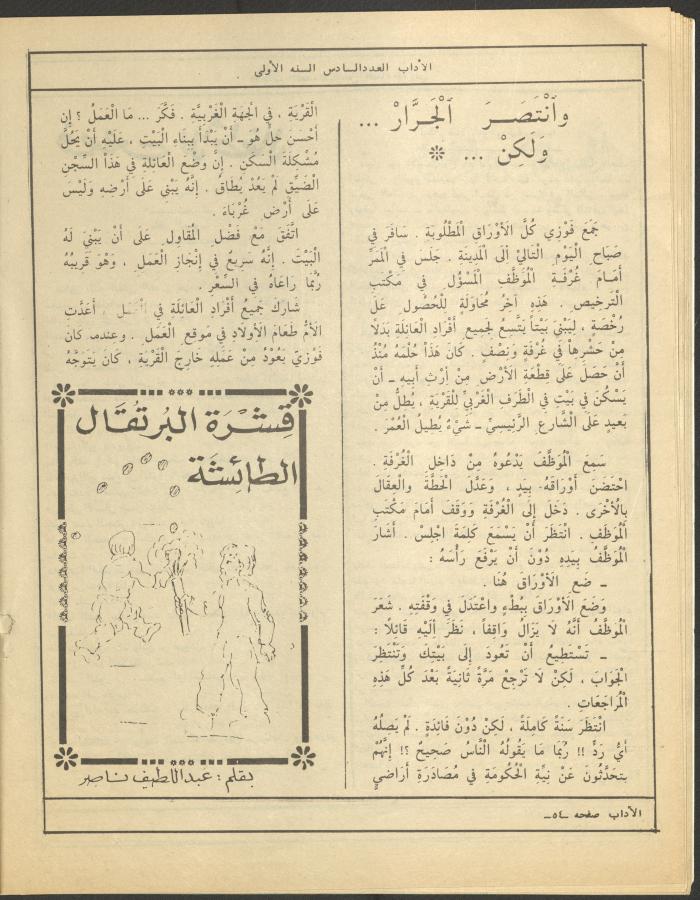 الآداب العدد السادس السنه الأولى
وَٱنْتَصَـــرَ ٱلْجَـرَّارُ ...
وَلَكِنْ ... *
جَمَعَ فَوْزِي كُلَّ الأَوْرَاقِ المَطْلُوبَةِ . سَافَرَ فِي
صَبَاحِ الْيَوْمِ التَالِيْ الَى المَدِينَةِ . جَلَسَ فِي المَمَرّ
أَمَامَ غُرْفَةِ الْمُوَظَّفِ الْمَسْؤُلِ فِي مَكْتَبِ
التَرخِيصِ . هَذِهِ آخِرُ مُحَاوَلَةٍ لِلْحُصُولِ عَلَى
رُخْصَةٍ ، لِيَبْنِيَ بَيْتاً يَتَّسِعُ لِجَمِيعِ أَفْرَادِ العَائِلَةِ بَدَلاً
مِنْ حَشْرِهَا فِي غُرْفَةٍ وَنِصْفٍ . كَانَ هَذَاْ حُلْمَهُ مُنْذُ
أَنْ حَصَلَ عَلَى قِطْعَةِ الأَرْضِ مِنْ إِرْثِ أَبِيهِ ــ أَنْ
يَسْكُنَ فِي بَيْتٍ فِي الْطَرَفِ الغَرْبِيِّ لِلْقَرْيَةِ ، يُطِلُّ مِنْ
بَعِيدٍ عَلَى الشَّارِعِ الرَّئِيسِيِّ ــ شَيْءٌ يُطِيلُ الْعُمْرَ .
سَمِعَ الْمُوَظَّفَ يَدْعُوهُ مِنْ دَاخِلِ الْغُرْفَةِ .
احْتَضَنَ أَوْرَاقَهُ بِيَدٍ ، وَعَدَّلَ الْحَطَّةَ والْعِقَالَ
بِالْأُخْرَى . دَخَلَ إِلَى الْغُرْفَةِ وَوَقَفَ أَمَامَ مَكْتَبِ
الْمُوَظَّفِ . انْتَظَرَ أَنْ يَسْمَعَ كَلِمَةَ اجْلِسْ . أَشَارَ
الْمُوَظَّفُ بِيَدِهِ دُوْنَ أَنْ يَرْفَعَ رَأْسَهُ :
ــ ضَعِ الْأَوْرَاقَ هُنَا .
وَضَعَ الْأَوْرَاقَ بِبُطْءٍ وَاعْتَدَلَ فِي وَقْفَتِهِ . شَعَرَ
الْمُوَظَّفُ أَنَّهُ لَا يَزَالُ وَاقِفاً ، نَظَرَ الَيْهِ قَائِلاً :
ــ تَسْتَطِيعُ أَنْ تَعُودَ إِلَى بَيْتِكَ وَتَنْتَظِرَ
الْجَوَابَ ، لَكِنْ لَا تَرْجِعْ مَرَّةً ثَانِيَةً بَعْدَ كُلِّ هَذِهِ
الْمُرَاجَعَاتِ .
انْتَظَرَ سَنَةً كَامِلَةً ، لَكِنْ دُونَ فَائِدَةٍ . لَمْ يَصِلْهُ
أَيُّ رَدٍّ !! رُبَمَا مَا يَقُولُهُ الْنَّاسُ صَحِيحٌ ؟! إِنَّهُمْ
يَتَحَدَّثُونَ عَنْ نِيَّةِ الْحُكُومَةِ فِي مُصَادَرَةِ أَرَاضِي
الْقَرْيَةِ ، فِي الْجِهَةِ الْغَرْبِيَّةِ . فَكَّرَ ... مَا الْعَمَلُ ؟ إِنَّ
أَحْسَنَ حَلٍّ هُوَ ــ أَنْ يَبْدَأَ بِبِنَاءِ الْبَيْتِ ، عَلَيْهِ أَنْ يَحُلَّ
مُشْكِلَةَ السَكَنِ . إِنَّ وَضْعَ الْعَائِلَةِ فِي هَذَاْ السِّجْنِ
الْضَيِّقِ لَمْ يَعُدْ يُطَاقُ . إِنَّهُ يَبْنِي عَلَى أَرْضِهِ وَلَيْسَ
عَلَى أَرْضِ غُرْبَاءَ .
اتَّفَقَ مَعَ فَضْلِ المُقَاوِلِ عَلَى أَنْ يَبْنِيَ لَهُ
الْبَيْتَ . إِنَّهُ سَرِيعٌ فِي إِنْجَازِ الْعَمَلِ ، وَهُوَ قَرِيبُهُ
رُبَّمَا رَاعَاهُ فِي السِّعْرِ .
شَارَكَ جَمِيعُ أَفْرَادِ الْعَائِلَةِ فِي الْعَمَلِ . أَعَدَّتِ
الْأُمُّ طَعَامَ الْأَوْلَادِ فِي مَوقِعِ الْعَمَلِ . وعندما كانَ
فَوْزِيّ يَعُوْدُ مِنْ عَمَلِهِ خَارِجَ الْقَرْيَةِ ، كَانَ يَتَوَجَّهُ
قِشْرَة البُرتُقَال
الطائِشَة
بقلم : عبداللطيف ناصر
الآداب صفحه ــ٥٤ــ